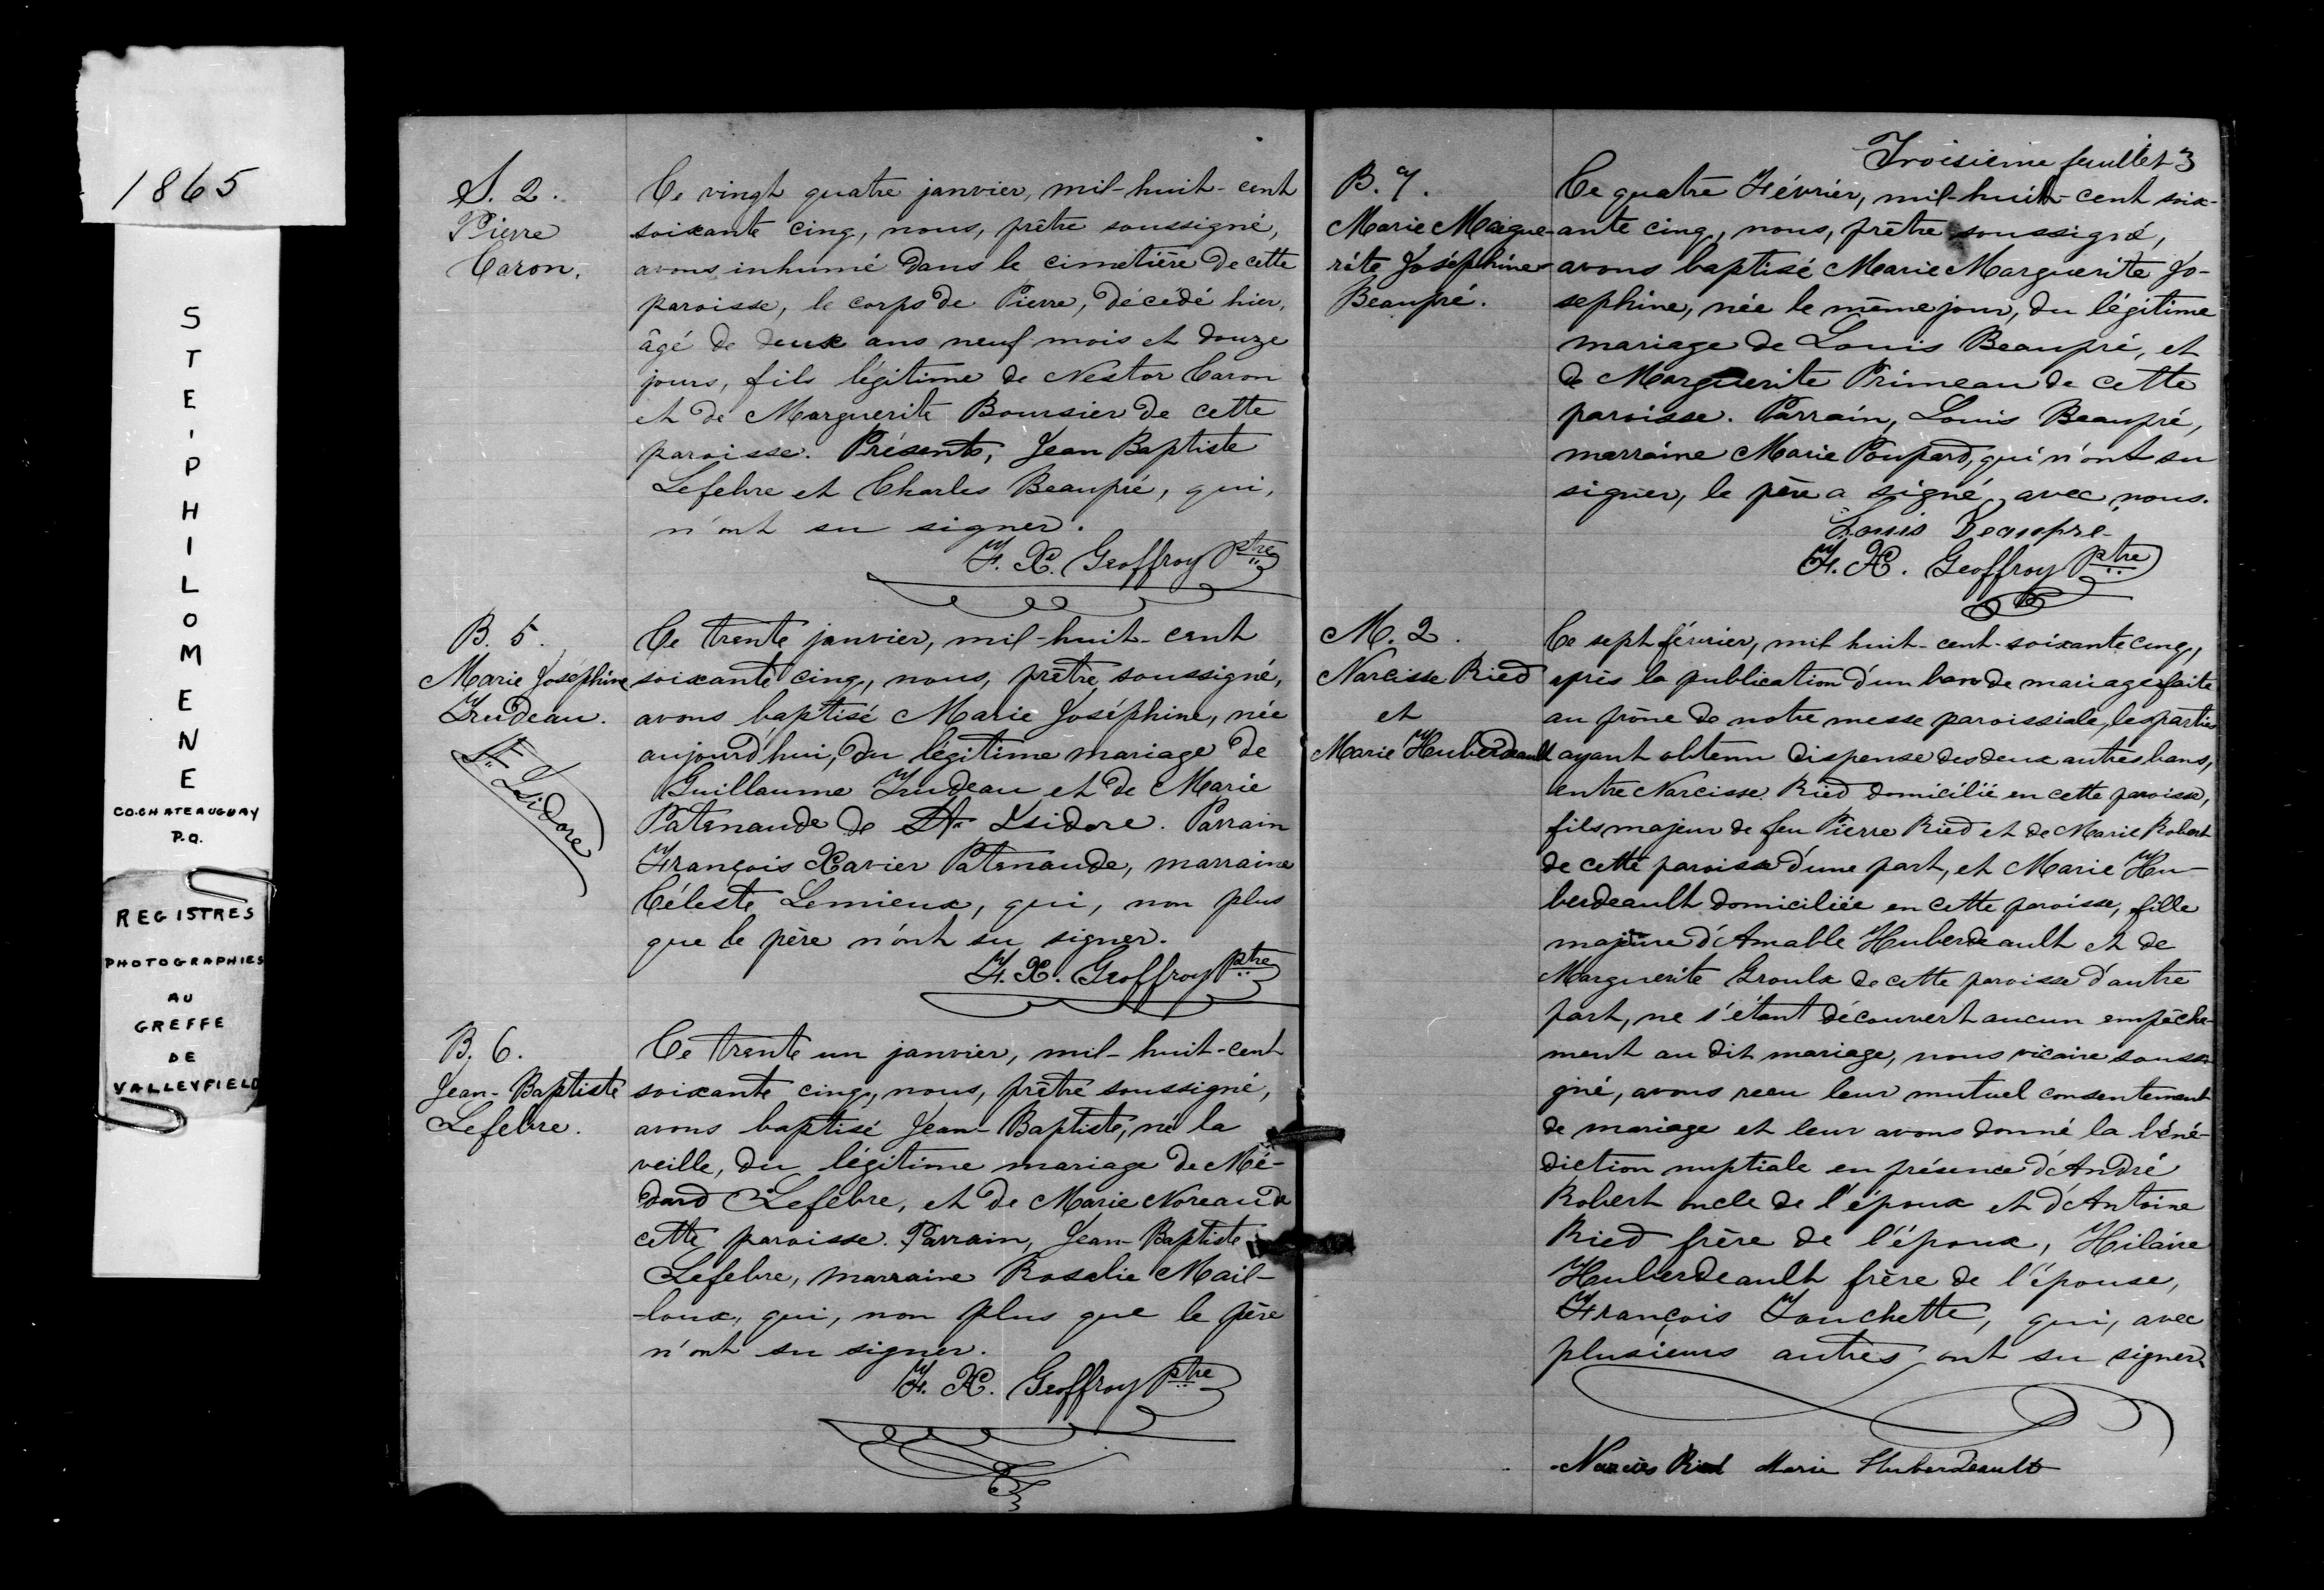 1865
STE.PHILOMENE
CO.CHATEAUGUAY
P.Q.
REGISTRES
PHOTOGRAPHIES
AU
GREFFE
DE
VALLEYFIELD
S. 2.
Pierre
Caron.
Ce vingt quatre janvier, mil-huit-cent
soixante cinq, nous, prêtre soussigné,
avons inhumé dans le cimetière de cette
paroisse, le corps de Pierre, décédé hier,
âgé de deux ans neuf mois et douze
jours, fils légitime de Nestor Caron
et de Marguerite Boursier de cette
paroisse. Présents, Jean Baptiste
Lefebre et Charles Beaupré, qui,
n'ont su signer.
F. X. Geoffroy Ptre
B. 5.
Marie Joséphine
Trudeau.
St. Isidore
Ce trente janvier, mil-huit-cent
soixante cinq, nous, prêtre soussigné,
avons baptisé Marie Joséphine, née
aujourd'hui, du légitime mariage de
Guillaume Trudeau et de Marie
Patenaude de St. Isidore. Parrain
François Xavier Patenaude, marraine
Céleste Lemieux, qui, non plus
que le père n'ont su signer.
F. X. Geoffroy Ptre
B. 6.
Jean-Baptiste
Lefebre.
Ce trente un janvier, mil-huit-cent
soixante cinq, nous, prêtre soussigné,
avons baptisé Jean-Baptiste, né la
veille, du légitime mariage de Mé-
dard Lefebre, et de Marie Noreau de
cette paroisse. Parrain, Jean-Baptiste
Lefebre, marraine Rosalie Mail-
-loux, qui, non plus que le père
n'ont su signer.
F. X. Geoffroy Ptre
Troisième feuillet 3
B. 7.
Marie Margue-
rite Joséphine
Beaupré.
Ce quatre Février, mil-huit-cent soix-
ante cinq, nous, prêtre soussigné,
avons baptisé Marie Marguerite Jo-
sephine, née le même jour, du légitime
mariage de Louis Beaupré, et
de Marguerite Primeau de cette
paroisse. Parrain, Louis Beaupré,
marraine Marie Poupard, qui n'ont su
signer, le père a signé avec nous.
Louis Beaupre
F. X. Geoffroy Ptre
M. 2.
Narcisse Ried
et
Marie Huberdeault
Ce sept février, mil huit-cent-soixante cinq,
après la publication d'un ban de mariage faite
au prône de notre messe paroissiale, les parties
ayant obtenu dispense des deux autres bans,
entre Narcisse Ried domicilié en cette paroisse,
fils majeur de feu Pierre Ried et de Marie Robert
de cette paroisse d'une part, et Marie Hu-
berdeault domiciliée en cette paroisse, fille
majeure d'Amable Huberdeault et de
Marguerite Groulx de cette paroisse d'autre
part, ne s'étant découvert aucun empêche-
ment au dit mariage, nous vicaire soussi
gné, avons reçu leur mutuel consentement
de mariage et leur avons donné la béné-
diction nuptiale en présence d'André
Robert oncle de l'époux et d'Antoine
Ried frère de l'époux, Hilaire
Huberdeault frère de l'épouse,
François Touchette, qui, avec
plusieurs autres ont su signer
Ried Marie Huberdeault